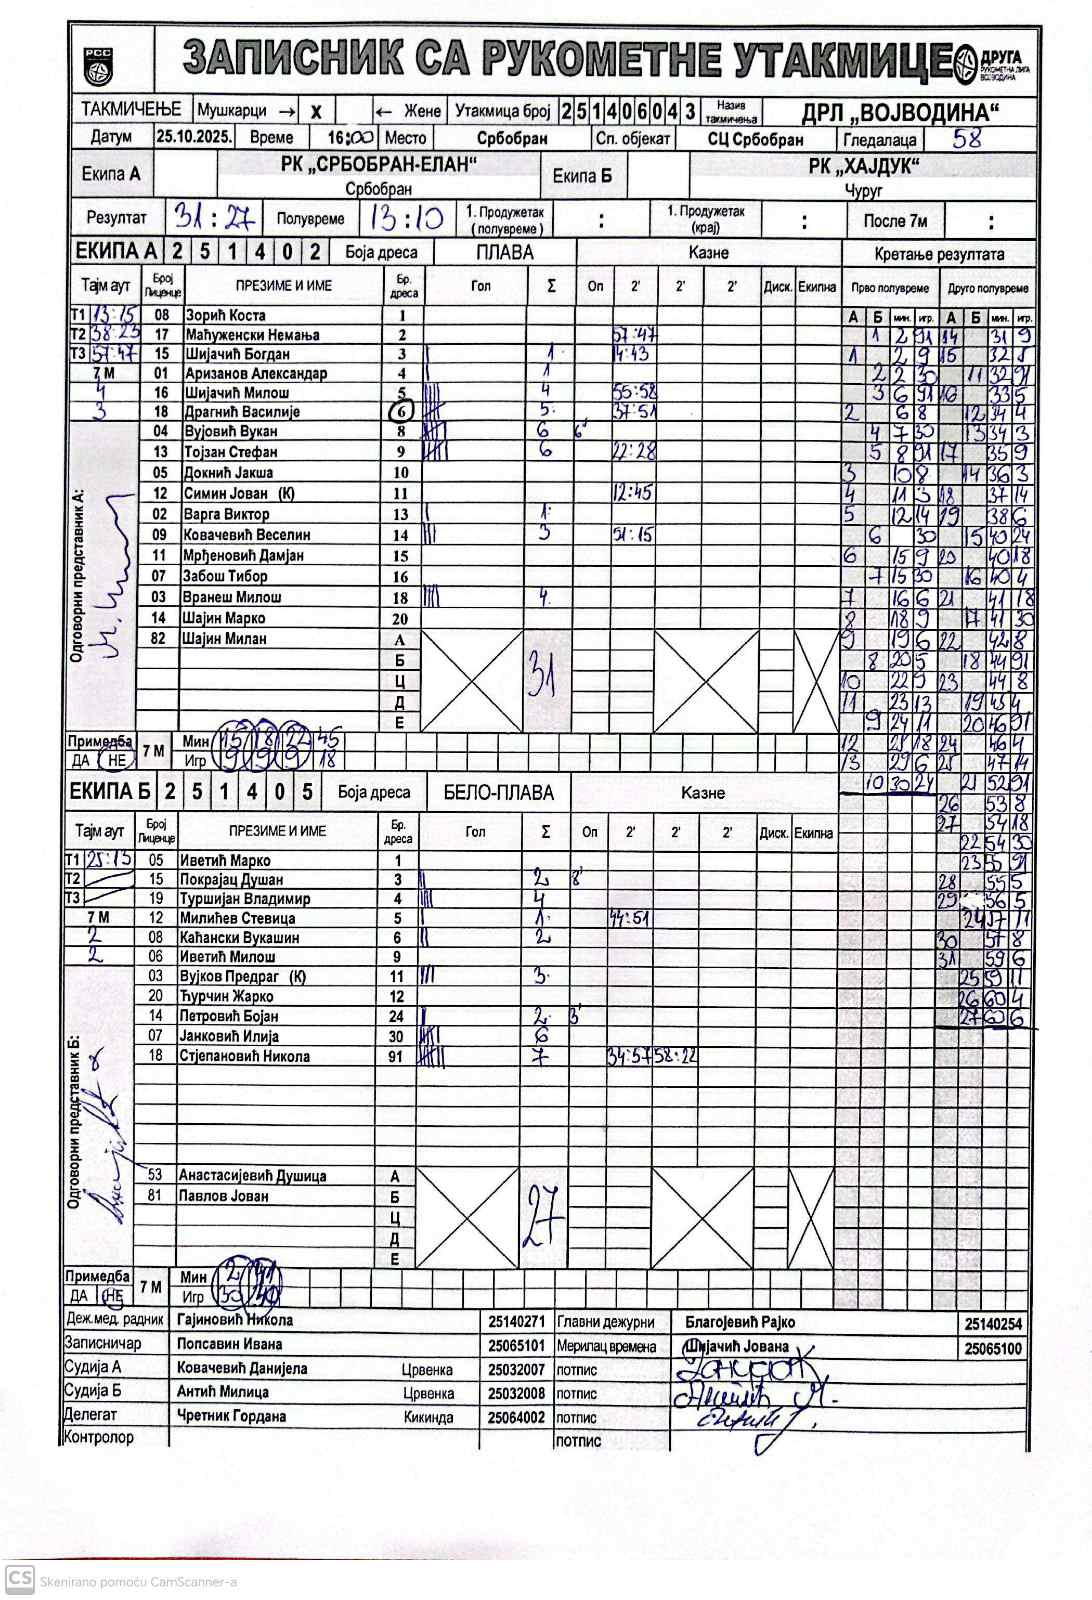 РСС
ЗАПИСНИК СА РУКОМЕТНЕ УТАКМИЦЕ
ДРУГА
РУКОМЕТНА ЛИГА
ВОЈВОДИНА
ТАКМИЧЕЊЕ Мушкарци → X ← Жене Утакмица број 251406043 Назив такмичења ДРЛ „ВОЈВОДИНА“
Датум 25.10.2025. Време 16:00 Место Србобран Сп. објекат СЦ Србобран Гледалаца 58
Екипа А РК „СРБОБРАН-ЕЛАН“ Србобран Екипа Б РК „ХАЈДУК“ Чуруг
Резултат 31:27 Полувреме 13:10 1. Продужетак (полувреме) : 1. Продужетак (крај) : После 7м :
ЕКИПА А 2 5 1 4 0 2 Боја дреса ПЛАВА Казне Кретање резултата
Тајм аут Број Лиценце ПРЕЗИМЕ И ИМЕ Бр. дреса Гол Σ Оп 2' 2' 2' Диск. Екипна Прво полувреме Друго полувреме
А Б мин. игр. А Б мин. игр.
Т1 13:15 08 Зорић Коста 1
Т2 38:23 17 Маћуженски Немања 2 57:47
Т3 57:47 15 Шијачић Богдан 3 1 14:43
7 М 01 Аризанов Александар 4 1
4 16 Шијачић Милош 5 4 55:58
3 18 Драгнић Василије 6 5 37:51
04 Вујовић Вукан 8 6 6'
13 Тојзан Стефан 9 6 22:28
05 Докнић Јакша 10
12 Симин Јован (К) 11 12:45
02 Варга Виктор 13 1
09 Ковачевић Веселин 14 3 51:15
11 Мрђеновић Дамјан 15
07 Забош Тибор 16
03 Вранеш Милош 18 4
14 Шајин Марко 20
82 Шајин Милан А
Б
Ц
Д
Е
31
Одговорни представник А:
Примедба ДА НЕ 7 М Мин 15 18 22 45
Игр 9 9 9 18
1 2 91 14 31 9
1 2 9 15 32 5
2 2 30 11 32 91
3 6 91 16 33 5
2 6 8 12 34 4
4 7 30 13 34 3
5 8 91 17 35 9
3 10 8 14 36 3
4 11 3 18 37 14
5 12 14 19 38 6
6 30 15 40 24
6 15 9 20 40 18
7 15 30 16 40 4
7 16 6 21 41 18
8 18 9 17 41 30
9 19 6 22 42 8
8 20 5 18 44 91
10 22 9 23 44 8
11 23 13 19 45 4
9 24 11 20 46 91
12 25 18 24 46 4
13 29 6 25 47 14
10 30 24 21 52 91
26 53 8
27 54 18
22 54 30
23 55 91
28 55 5
29 56 5
24 57 11
30 57 8
31 59 6
25 59 11
26 60 4
27 60 6
ЕКИПА Б 2 5 1 4 0 5 Боја дреса БЕЛО-ПЛАВА Казне
Тајм аут Број Лиценце ПРЕЗИМЕ И ИМЕ Бр. дреса Гол Σ Оп 2' 2' 2' Диск. Екипна
Т1 25:13 05 Иветић Марко 1
Т2 15 Покрајац Душан 3 2 8'
Т3 19 Туршијан Владимир 4 4
7 М 12 Милићев Стевица 5 1 44:51
2 08 Каћански Вукашин 6 2
2 06 Иветић Милош 9
03 Вујков Предраг (К) 11 3
20 Ћурчин Жарко 12
14 Петровић Бојан 24 2 3'
07 Јанковић Илија 30 6
18 Стјепановић Никола 91 7 34:57 58:22
53 Анастасијевић Душица А
81 Павлов Јован Б
Ц
Д
Е
27
Одговорни представник Б:
Примедба ДА НЕ 7 М Мин 2 41
Игр 30 30
Деж.мед. радник Гајиновић Никола 25140271 Главни дежурни Благојевић Рајко 25140254
Записничар Попсавин Ивана 25065101 Мерилац времена Шијачић Јована 25065100
Судија А Ковачевић Данијела Црвенка 25032007 потпис
Судија Б Антић Милица Црвенка 25032008 потпис
Делегат Чретник Гордана Кикинда 25064002 потпис
Контролор потпис
CS Skenirano pomoću CamScanner-a